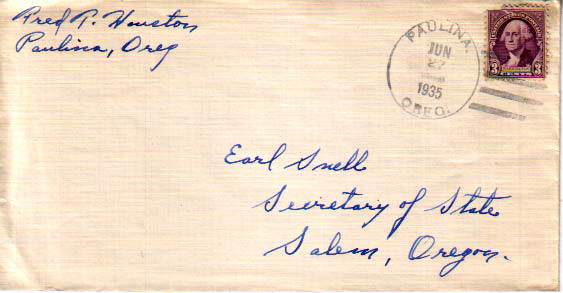 Fred T. Houston
Paulina, Oreg
PAULINA,
JUN
27
1935
OREG.
3 3
CENTS
Earl Snell
Secretary of State
Salem, Oregon.